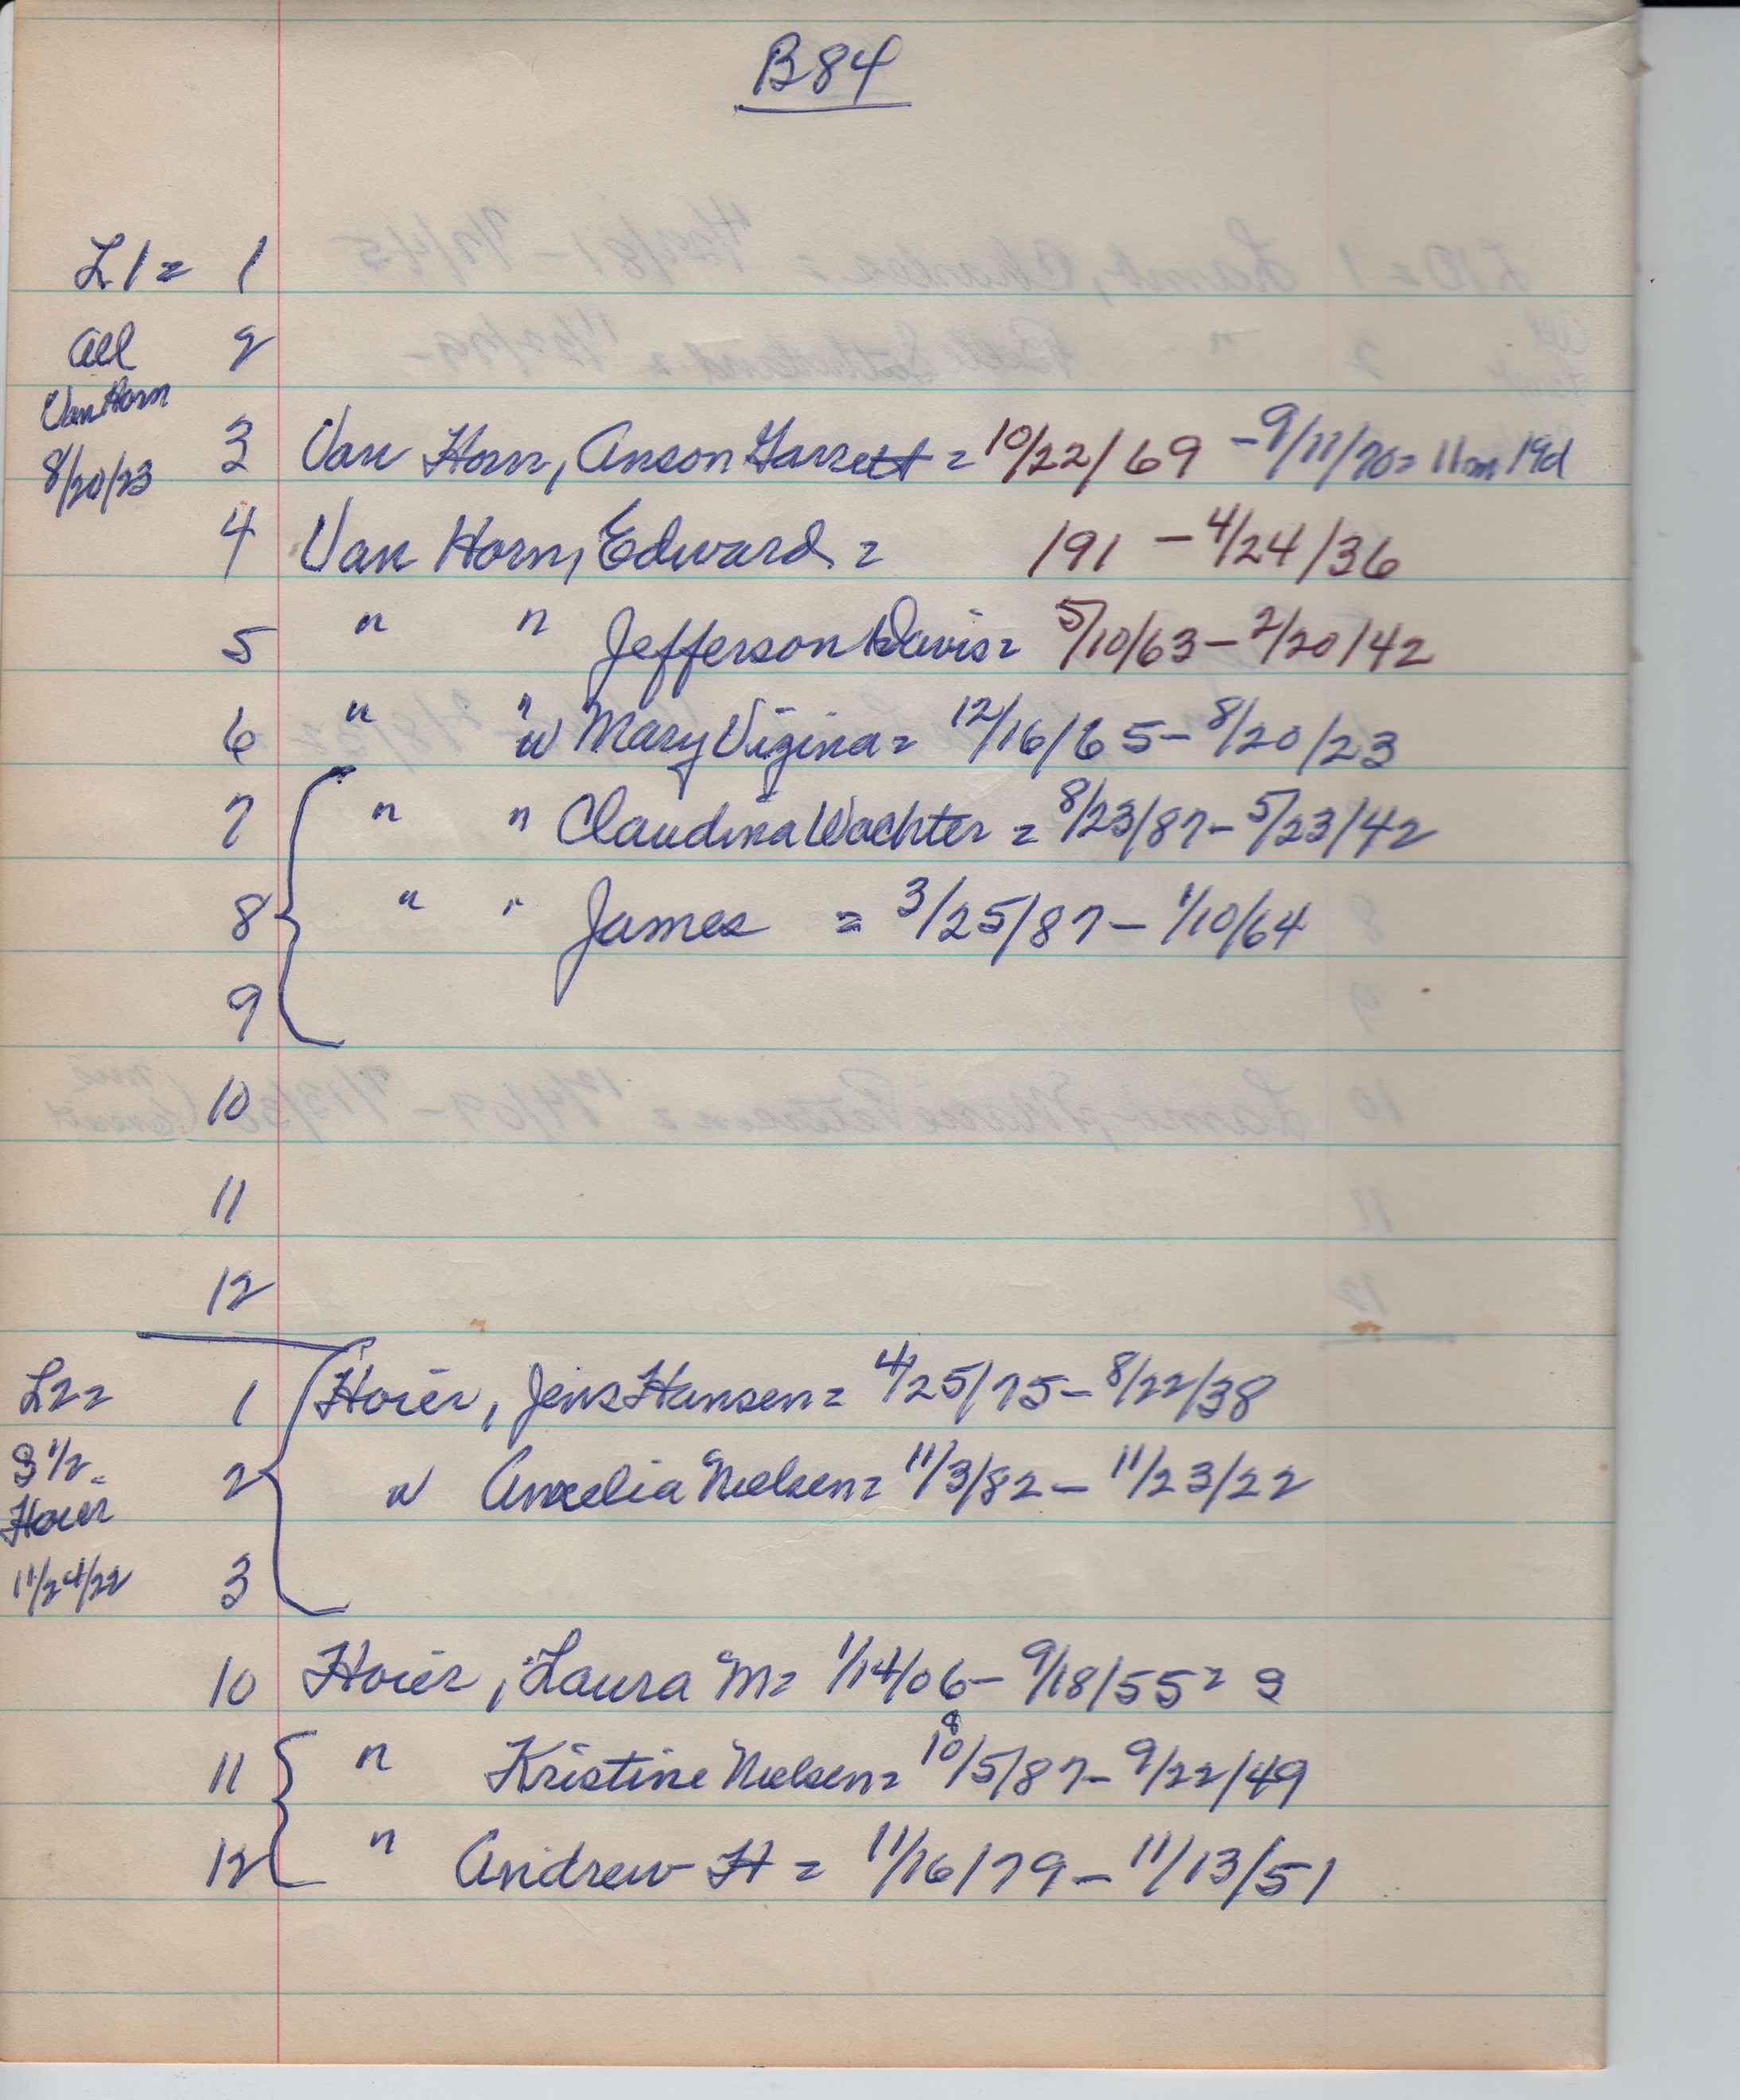 B84
L1 = 1
All 2
Van Horn
8/20/23 3 Van Horn, Anson Garrett = 10/22/69 - 9/11/70 = 11m 19d
4 Van Horn, Edward = 191 - 4/24/36
5 " " Jefferson Davis = 5/10/63 - 2/20/42
6 " " Mary Vigina = 12/16/65 - 8/20/23
7 " " Claudina Wachter = 8/23/87 - 5/23/42
8 " " James = 3/25/87 - 1/10/64
9
10
11
12
L2 = 1 Hoier, Jens Hansen = 4/25/75 - 8/22/38
S 1/2 = 2 " Amelia Nielsen = 11/3/82 - 11/23/22
Hoier
11/24/22 3
10 Hoier, Laura M = 1/14/06 - 9/18/55 = S
8
11 " Kristine Nielsen = 10/5/87 - 9/22/49
12 " Andrew H = 11/16/79 - 11/13/51